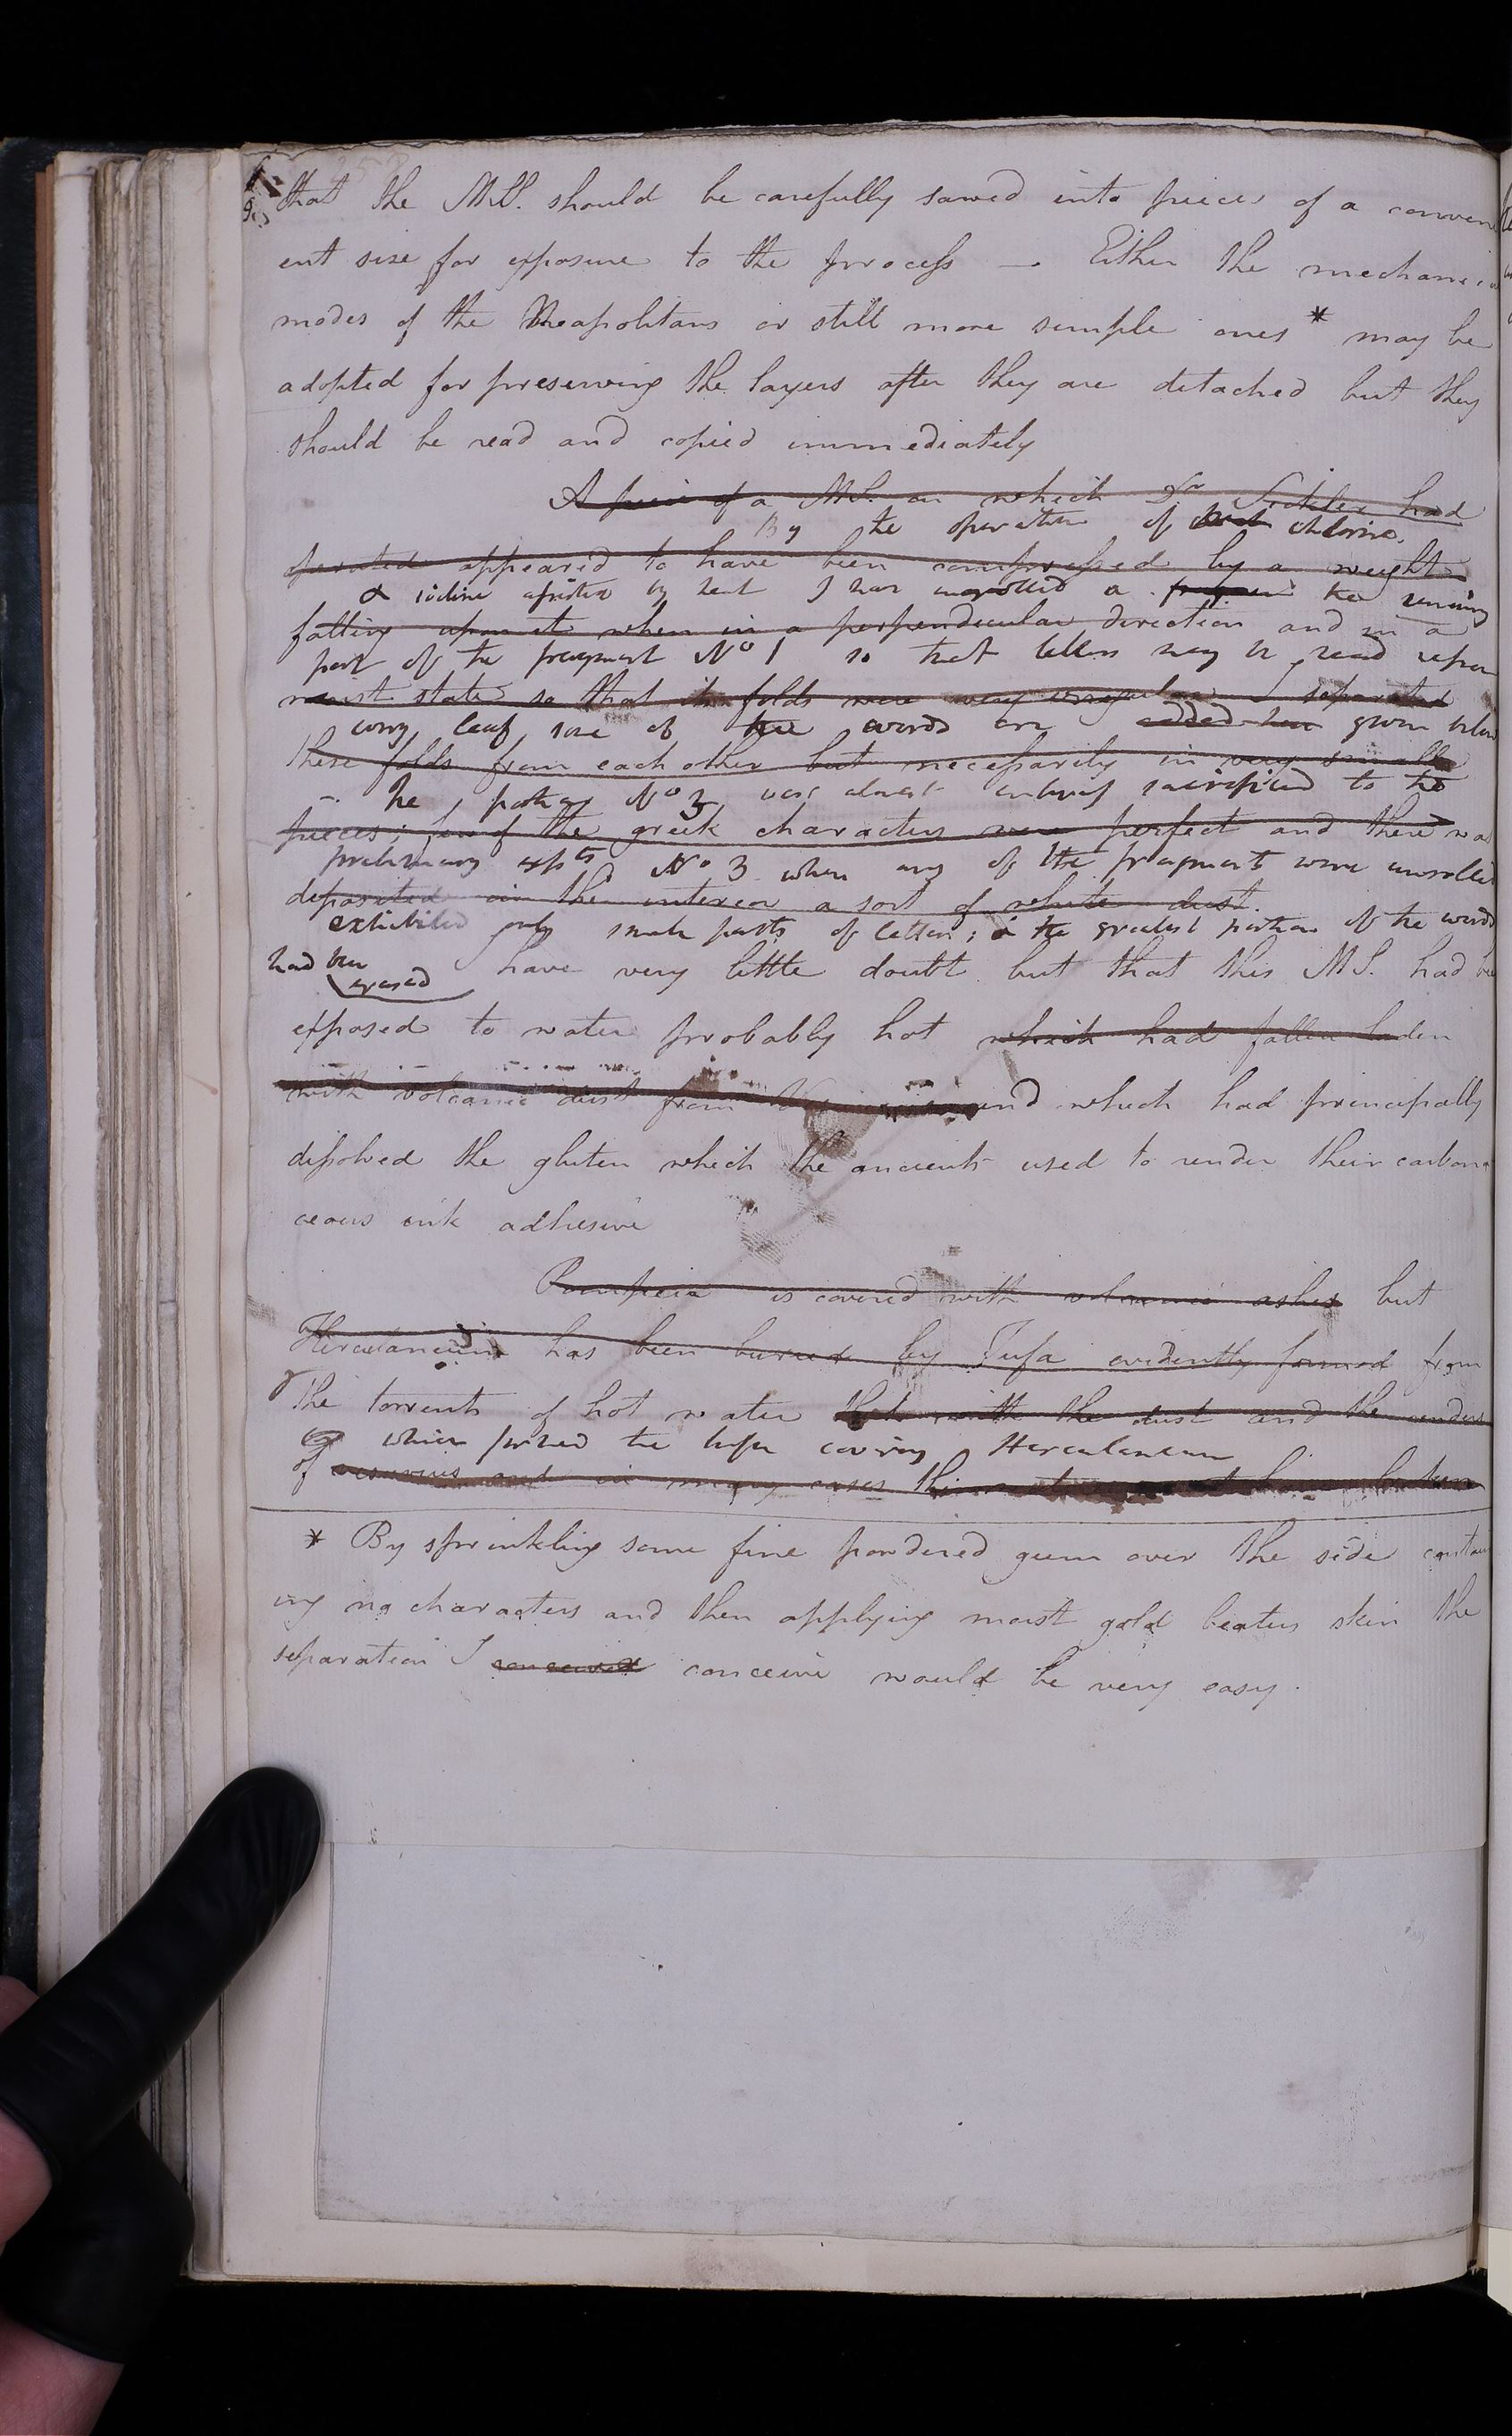 that the MSS. should be carefully sawed into pieces of a conven
ent size for exposure to the process — Either the mechanic
modes of the Neapolitans or still more simple ones * may be
adopted for preserving the layers after they are detached but they
should be read and copied immediately
A piece of a MS. on which Dr Sickler had
By the operation of chlorine.
operated appeared to have been compressed by a weight
& iodine assisted by heat I have unrolled a the remaining
falling upon it when in a perpendicular direction and in a
part of the fragment No 1 so that letters may be read upon
moist state so that its folds were very irregular I separated
every leaf some of the words are added here given below
these folds from each other but necessarily in very small
The No 3 was almost entirely sacrificed to the
pieces; few of the greek characters were perfect and there was
preliminary expts No 3 when any of the fragment were unrolled
deposited in the interior a sort of white dust.
exhibited only small parts of letters; & the greatest portion of the words
had been erased
I have very little doubt but that this MS. had be
exposed to water probably hot which had fallen laden
with volcanic dust from and which had principally
dissolved the gluten which the ancients used to render their carbona
ceous ink adhesive
Pompeia is covered with volcanic ashes but
Herculaneum has been buried by Tufa evidently formed from
the torrents of hot water with the dust and the cinders
which formed the tufa covering Herculaneum
of vesuvius and in many cases this
* By sprinkling some fine powdered gum over the side contain
ing no characters and then applying moist gold beaters skin the
separation I conceived conceive would be very easy.